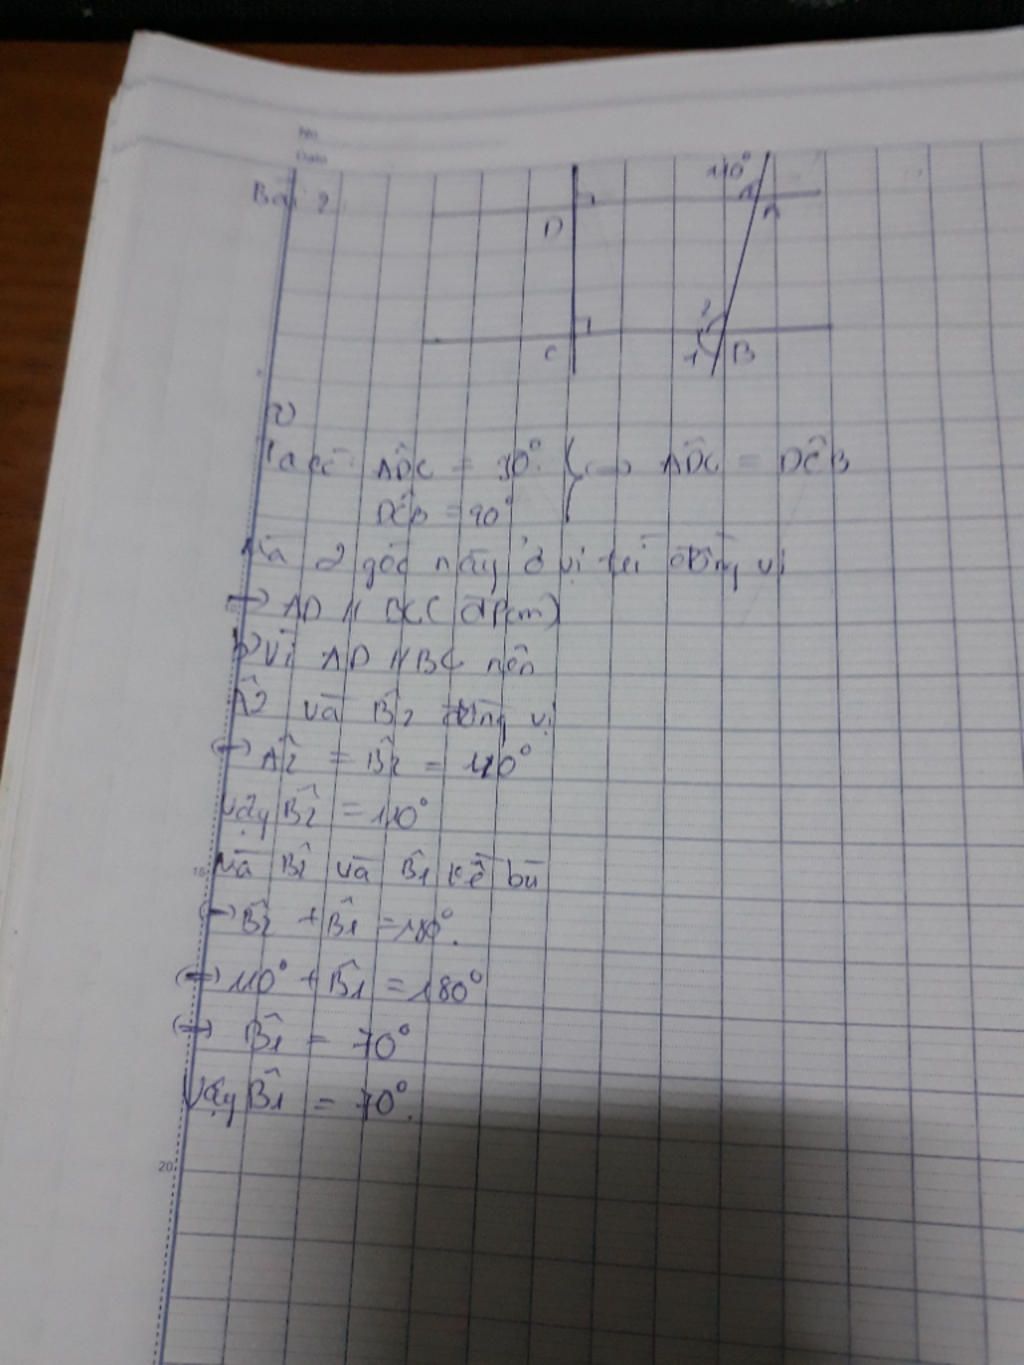 No
Date
Bài 2
110°
D
A
2
C
1
B
Ta có ADĈ = 90°
⇒ ADĈ = DĈB
DĈB = 90°
Mà 2 góc này ở vị trí đồng vị
→ AD // BC (đpcm)
b) Vì AD // BC nên
Â2 và B̂2 đồng vị
⇔ Â2 = B̂2 = 110°
Vậy B̂2 = 110°
15
Mà B̂2 và B̂1 kề bù
⇔ B̂2 + B̂1 = 180°.
⇔ 110° + B̂1 = 180°
⇔ B̂1 = 70°
Vậy B̂1 = 70°.
20